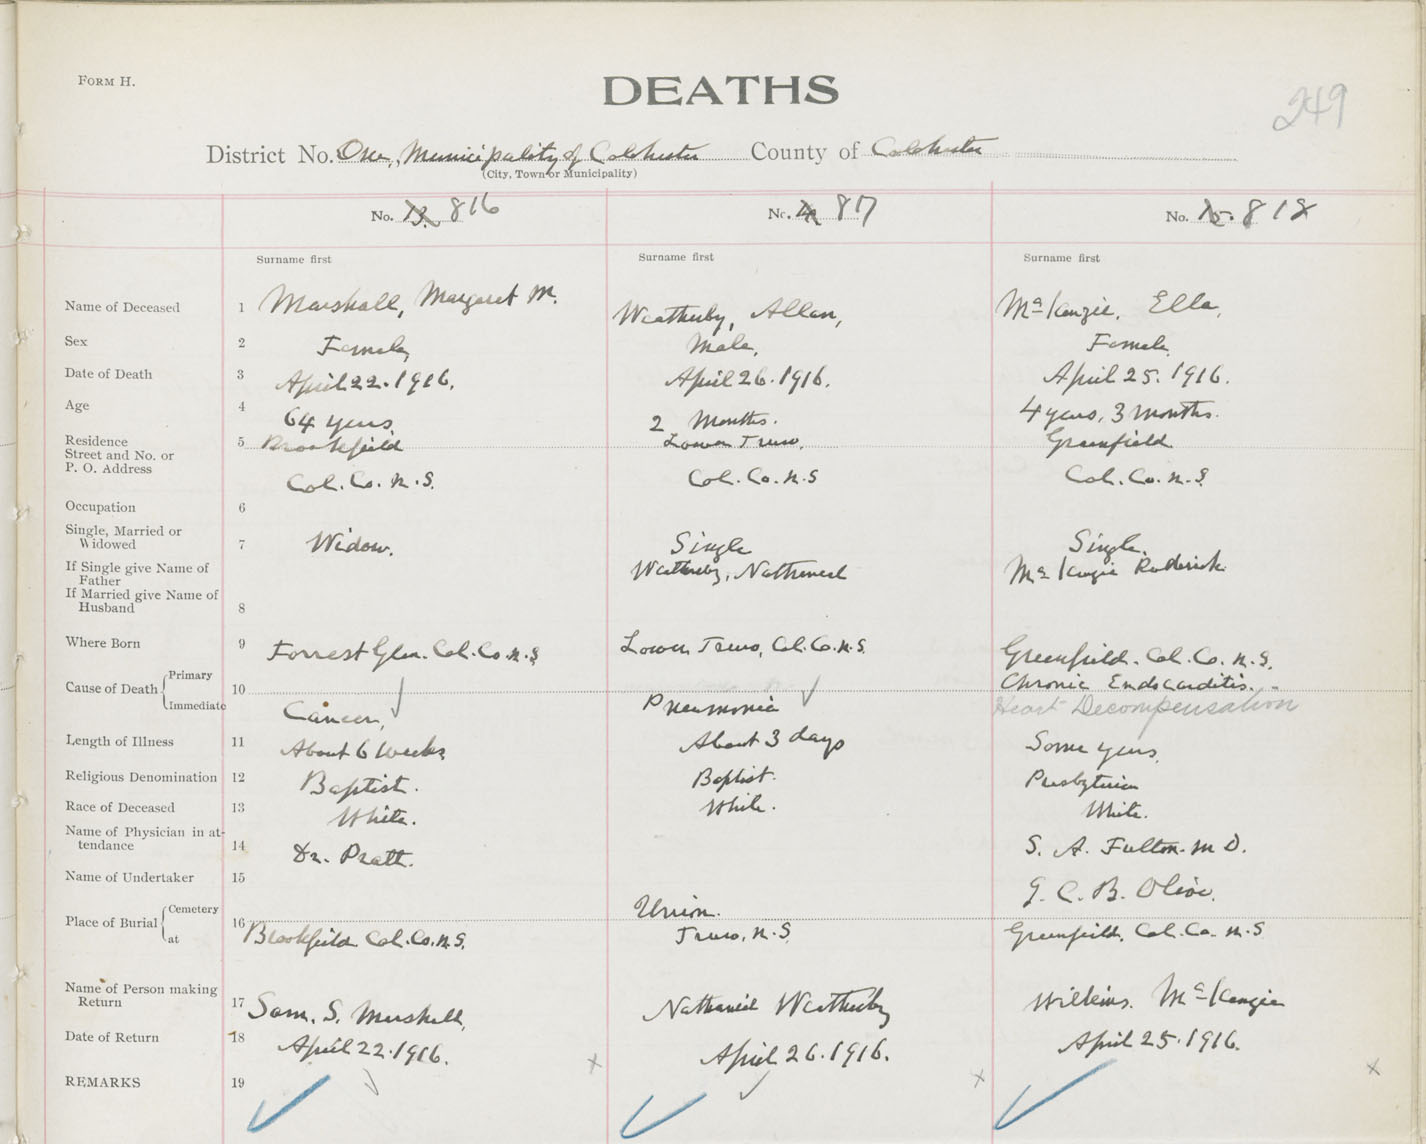 FORM H.
DEATHS
249
District No. One, Municipality of Colchester County of Colchester
(City, Town or Municipality)
No. 13. 816 No. 817 No. 15. 818
Surname first Surname first Surname first
Name of Deceased 1 Marshall, Margaret M. Weatherby, Allan, McKenzie, Ella,
Sex 2 Female, Male, Female,
Date of Death 3 April 22. 1916. April 26. 1916. April 25. 1916.
Age 4 64 years 2 Months. 4 years, 3 months.
Residence 5 Brookfield Lower Truro, Greenfield
Street and No. or
P. O. Address Col. Co. N. S. Col. Co. N. S Col. Co. N. S.
Occupation 6
Single, Married or
Widowed 7 Widow. Single Single.
If Single give Name of
Father Weatherby, Nathaniel McKenzie Roderick
If Married give Name of
Husband 8
Where Born 9 Forrest Glen. Col. Co. N. S. Lower Truro, Col. Co. N. S. Greenfield. Col. Co. N. S.
Cause of Death Primary 10 Chronic Endocarditis.
Immediate Cancer, Pneumonia Heart Decompensation
Length of Illness 11 About 6 weeks About 3 days Some years,
Religious Denomination 12 Baptist. Baptist. Presbyterian
Race of Deceased 13 White. White. White.
Name of Physician in at-
tendance 14 Dr. Pratt. S. A. Fulton. M D.
Name of Undertaker 15 G. C. B. Olive.
Place of Burial Cemetery 16 Union.
at Brookfield Col. Co. N. S. Truro, N. S. Greenfield, Col. Co. N. S
Name of Person making
Return 17 Sam. S. Marshall, Nathaniel Weatherby McKenzie
Date of Return 18 April 22. 1916. April 26. 1916. April 25. 1916.
REMARKS 19